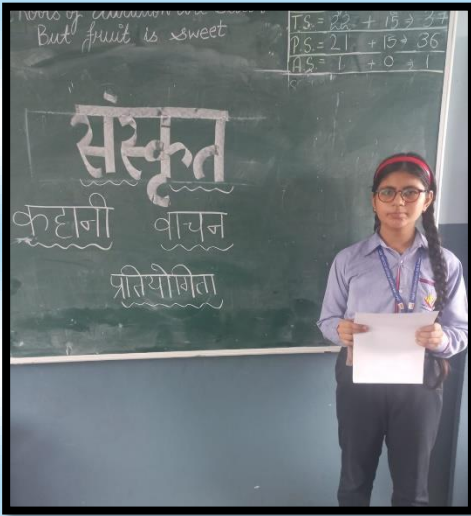 But fruit is sweet
T.S. = 22 + 15 → 37
P.S. = 21 + 15 → 36
A.S. = 1 + 0 → 1
संस्कृत
कहानी वाचन
प्रतियोगिता